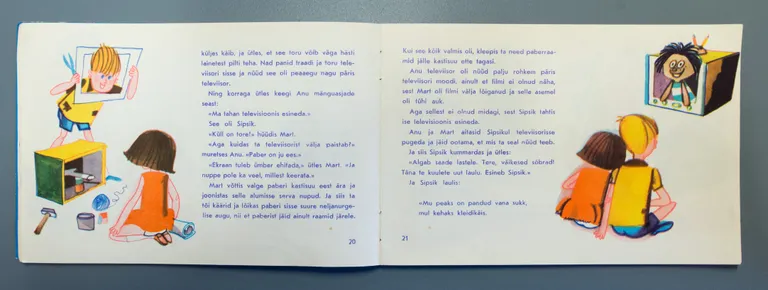 küljes käib, ja ütles, et see toru võib väga hästi
lainetest pilti teha. Nad panid traadi ja toru tele-
viisori sisse ja nüüd see oli peaaegu nagu päris
televiisor.
Ning korraga ütles keegi Anu mänguasjade
seast:
«Ma tahan televisioonis esineda.»
See oli Sipsik.
«Küll on tore!» hüüdis Mart.
«Aga kuidas ta televiisorist välja paistab?»
muretses Anu. «Paber on ju ees.»
«Ekraan tuleb ümber ehitada,» ütles Mart. «Ja
nuppe pole ka veel, millest keerata.»
Mart võttis valge paberi kastisuu eest ära ja
joonistas sella alumisse serva nupud. Ja siis ta
tõi käärid ja lõikas paberi sisse suure neljanurge-
lise augu, nii et paberist jäid ainult raamid järele.
20
Kui see kõik valmis oli, kleepis ta need paberraa-
mid jälle kastisuu ette tagasi.
Anu televiisor oli nüüd palju rohkem päris
televiisori moodi, ainult et filmi ei olnud näha,
sest Mart oli filmi välja lõiganud ja selle asemel
oli tühi auk.
Aga sellest ei olnud midagi, sest Sipsik tahtis
ise televisioonis esineda.
Anu ja Mart aitasid Sipsikul televiisorisse
pugeda ja jäid ootama, et mis ta seal nüüd teeb.
Ja siis Sipsik kummardas ja ütles:
«Algab saade lastele. Tere, väikesed sõbrad!
Täna te kuulete uut laulu. Esineb Sipsik.»
Ja Sipsik laulis:
«Mu peaks on pandud vana sukk,
mul kehaks kleidikäis,
21